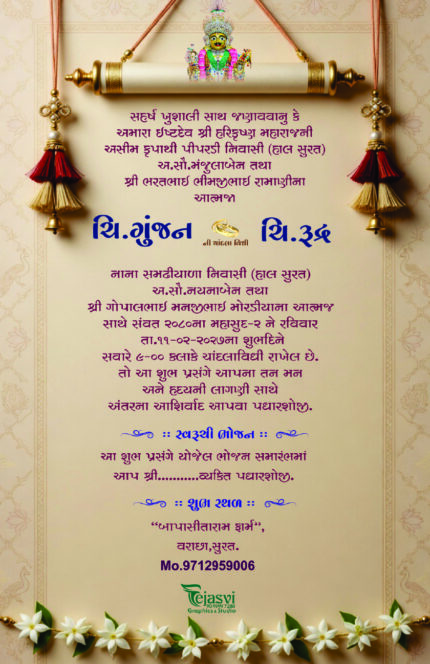 સહર્ષ ખુશાલી સાથ જણાવવાનુ કે
અમારા ઇષ્ટદેવ શ્રી હરિકૃષ્ણ મહારાજની
અસીમ કૃપાથી પીપરડી નિવાસી (હાલ સુરત)
અ.સૌ.મંજુલાબેન તથા
શ્રી ભરતભાઈ ભીમજીભાઈ રામાણીના
આત્મજા
ચિ.ગુંજન ની ચાંદલા વિધી ચિ.રૂદ્ર
નાના સમઢીયાળા નિવાસી (હાલ સુરત)
અ.સૌ.નયનાબેન તથા
શ્રી ગોપાલભાઈ મનજીભાઈ મોરડીયાના આત્મજ
સાથે સંવત ૨૦૮૦ના મહાસુદ-૨ ને રવિવાર
તા.૧૧-૦૨-૨૦૨૭ના શુભદિને
સવારે ૯-૦૦ કલાકે ચાંદલાવિધી રાખેલ છે.
તો આ શુભ પ્રસંગે આપના તન મન
અને હૃદયની લાગણી સાથે
અંતરના આશિર્વાદ આપવા પધારશોજી.
:: સ્વરૂચી ભોજન ::
આ શુભ પ્રસંગે યોજેલ ભોજન સમારંભમાં
આપ શ્રી...........વ્યકિત પધારશોજી.
:: શુભ સ્થળ ::
“બાપાસીતારામ ફાર્મ”,
વરાછા,સુરત.
Mo.9712959006
Tejasvi
Graphics & Studio